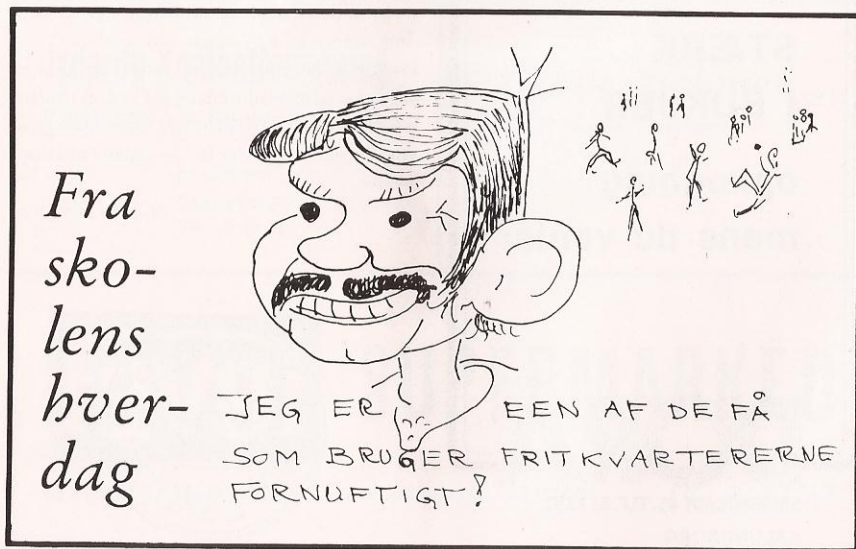 Fra
sko-
lens
hver-
dag
JEG ER EEN AF DE FÅ
SOM BRUGER FRITKVARTERERNE
FORNUFTIGT!